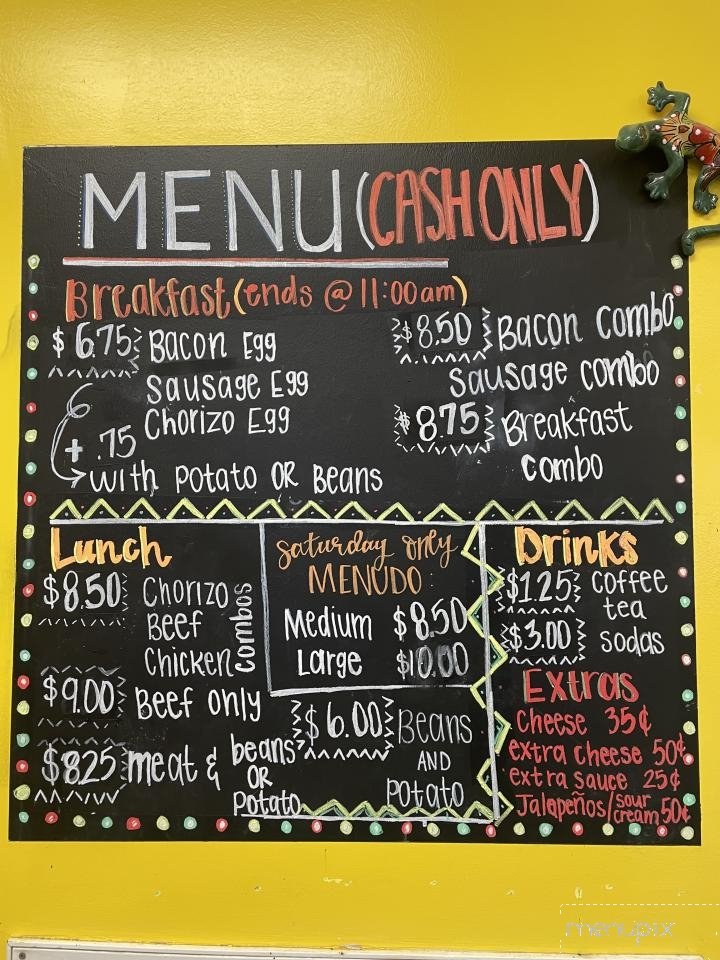 MENU (CASH ONLY)
Breakfast (ends @ 11:00am)
$6.75 Bacon Egg
Sausage Egg
Chorizo Egg
+ .75
with Potato OR Beans
$8.50 Bacon Combo
Sausage Combo
$8.75 Breakfast
Combo
Lunch
$8.50 Chorizo
Beef
Chicken
Combos
$9.00 Beef only
$8.25 meat & beans
OR
Potato
Saturday only
MENUDO:
Medium $8.50
Large $10.00
$6.00 Beans
AND
Potato
Drinks
$1.25 Coffee
tea
$3.00 sodas
Extras
Cheese 35¢
extra cheese 50¢
extra sauce 25¢
Jalapeños/sour cream 50¢
menupix